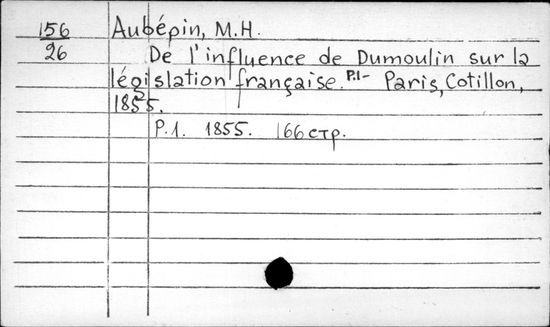 156 Aubépin, M.H.
26 De l'influence de Dumoulin sur la
législation française. P.1- Paris, Cotillon,
1855.
P.1. 1855. 166 стр.